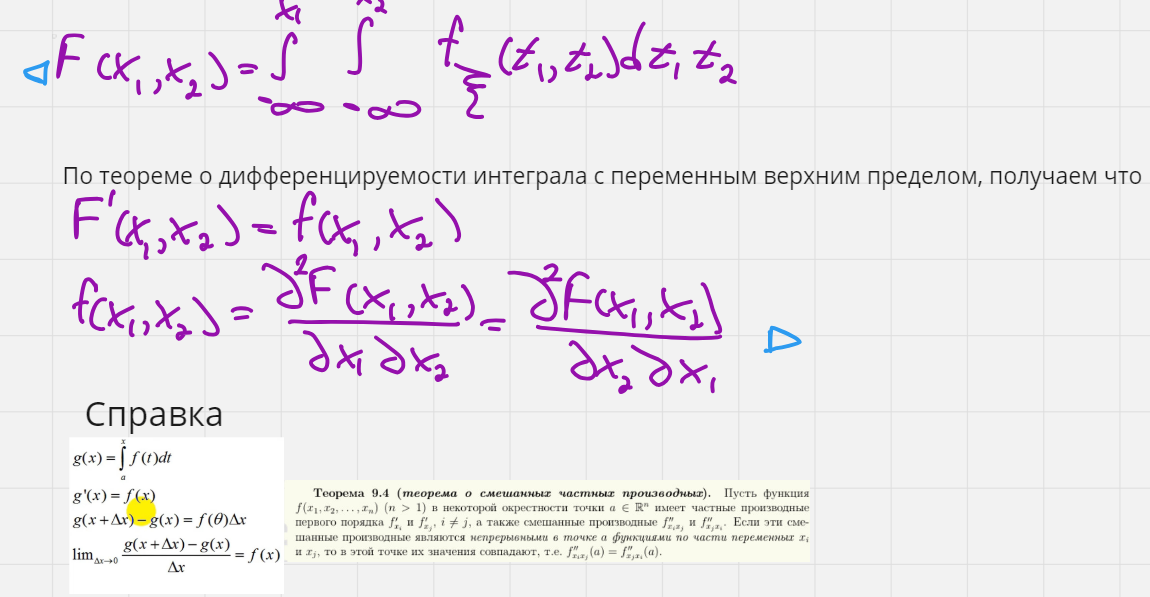 x₁ x₂
F(x₁,x₂) = ∫ ∫ f_ξ (t₁,t₂)dt₁ t₂
-∞ -∞
По теореме о дифференцируемости интеграла с переменным верхним пределом, получаем что
F'(x₁,x₂) = f(x₁,x₂)
f(x₁,x₂) = ∂²F(x₁,x₂)/∂x₁∂x₂ = ∂²F(x₁,x₂)/∂x₂∂x₁
Справка
g(x) = ∫ₐˣ f(t)dt
g'(x) = f(x)
g(x+Δx) – g(x) = f(θ)Δx
lim_{Δx→0} (g(x+Δx) – g(x))/Δx = f(x)
Теорема 9.4 (теорема о смешанных частных производных). Пусть функция
f(x₁, x₂, . . . , xₙ) (n > 1) в некоторой окрестности точки a ∈ ℝⁿ имеет частные производные
первого порядка f'_{x_i} и f'_{x_j}, i ≠ j, а также смешанные производные f''_{x_i x_j} и f''_{x_j x_i}. Если эти сме-
шанные производные являются непрерывными в точке a функциями по части переменных x_i
и x_j, то в этой точке их значения совпадают, т.е. f''_{x_i x_j}(a) = f''_{x_j x_i}(a).